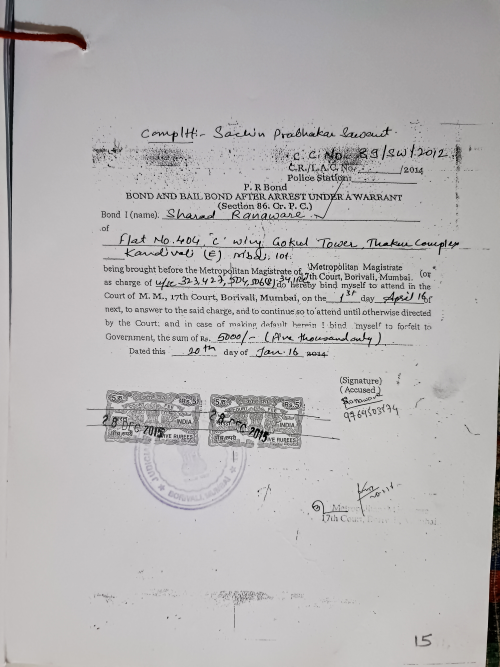 Complt:- Sachin Prabhakar Sawant
C. C. No. 89/SW/2012
C.R./L.A.C. No. /2014
Police Station:
P. R Bond
BOND AND BAIL BOND AFTER ARREST UNDER A WARRANT
(Section 86. Cr. P. C.)
Bond I (name). Sharad Ranaware
of
Flat No. 404, 'C' wing Gokul Tower, Thakur Complex
Kandivali (E) Mbai, 101.
being brought before the Metropolitan Magistrate of 17th Court, Borivali, Mumbai. (or
Metropolitan Magistrate
as charge of u/s 323, 427, 504, 506(2), 34 IPC do hereby bind myself to attend in the
Court of M. M., 17th Court, Borivali, Mumbai, on the 1st day April 16 of
next, to answer to the said charge, and to continue so to attend until otherwise directed
by the Court; and in case of making default herein I bind myself to forfeit to
Government, the sum of Rs. 5000/- (Five thousand only)
Dated this 20th day of Jan. 16 2014
(Signature)
(Accused)
Ranaware
INDIA
INDIA
28 DEC 2015
28 DEC 2015
FIVE RUPEES
FIVE RUPEES
BORIVALI MUMBAI
17th Court,
15